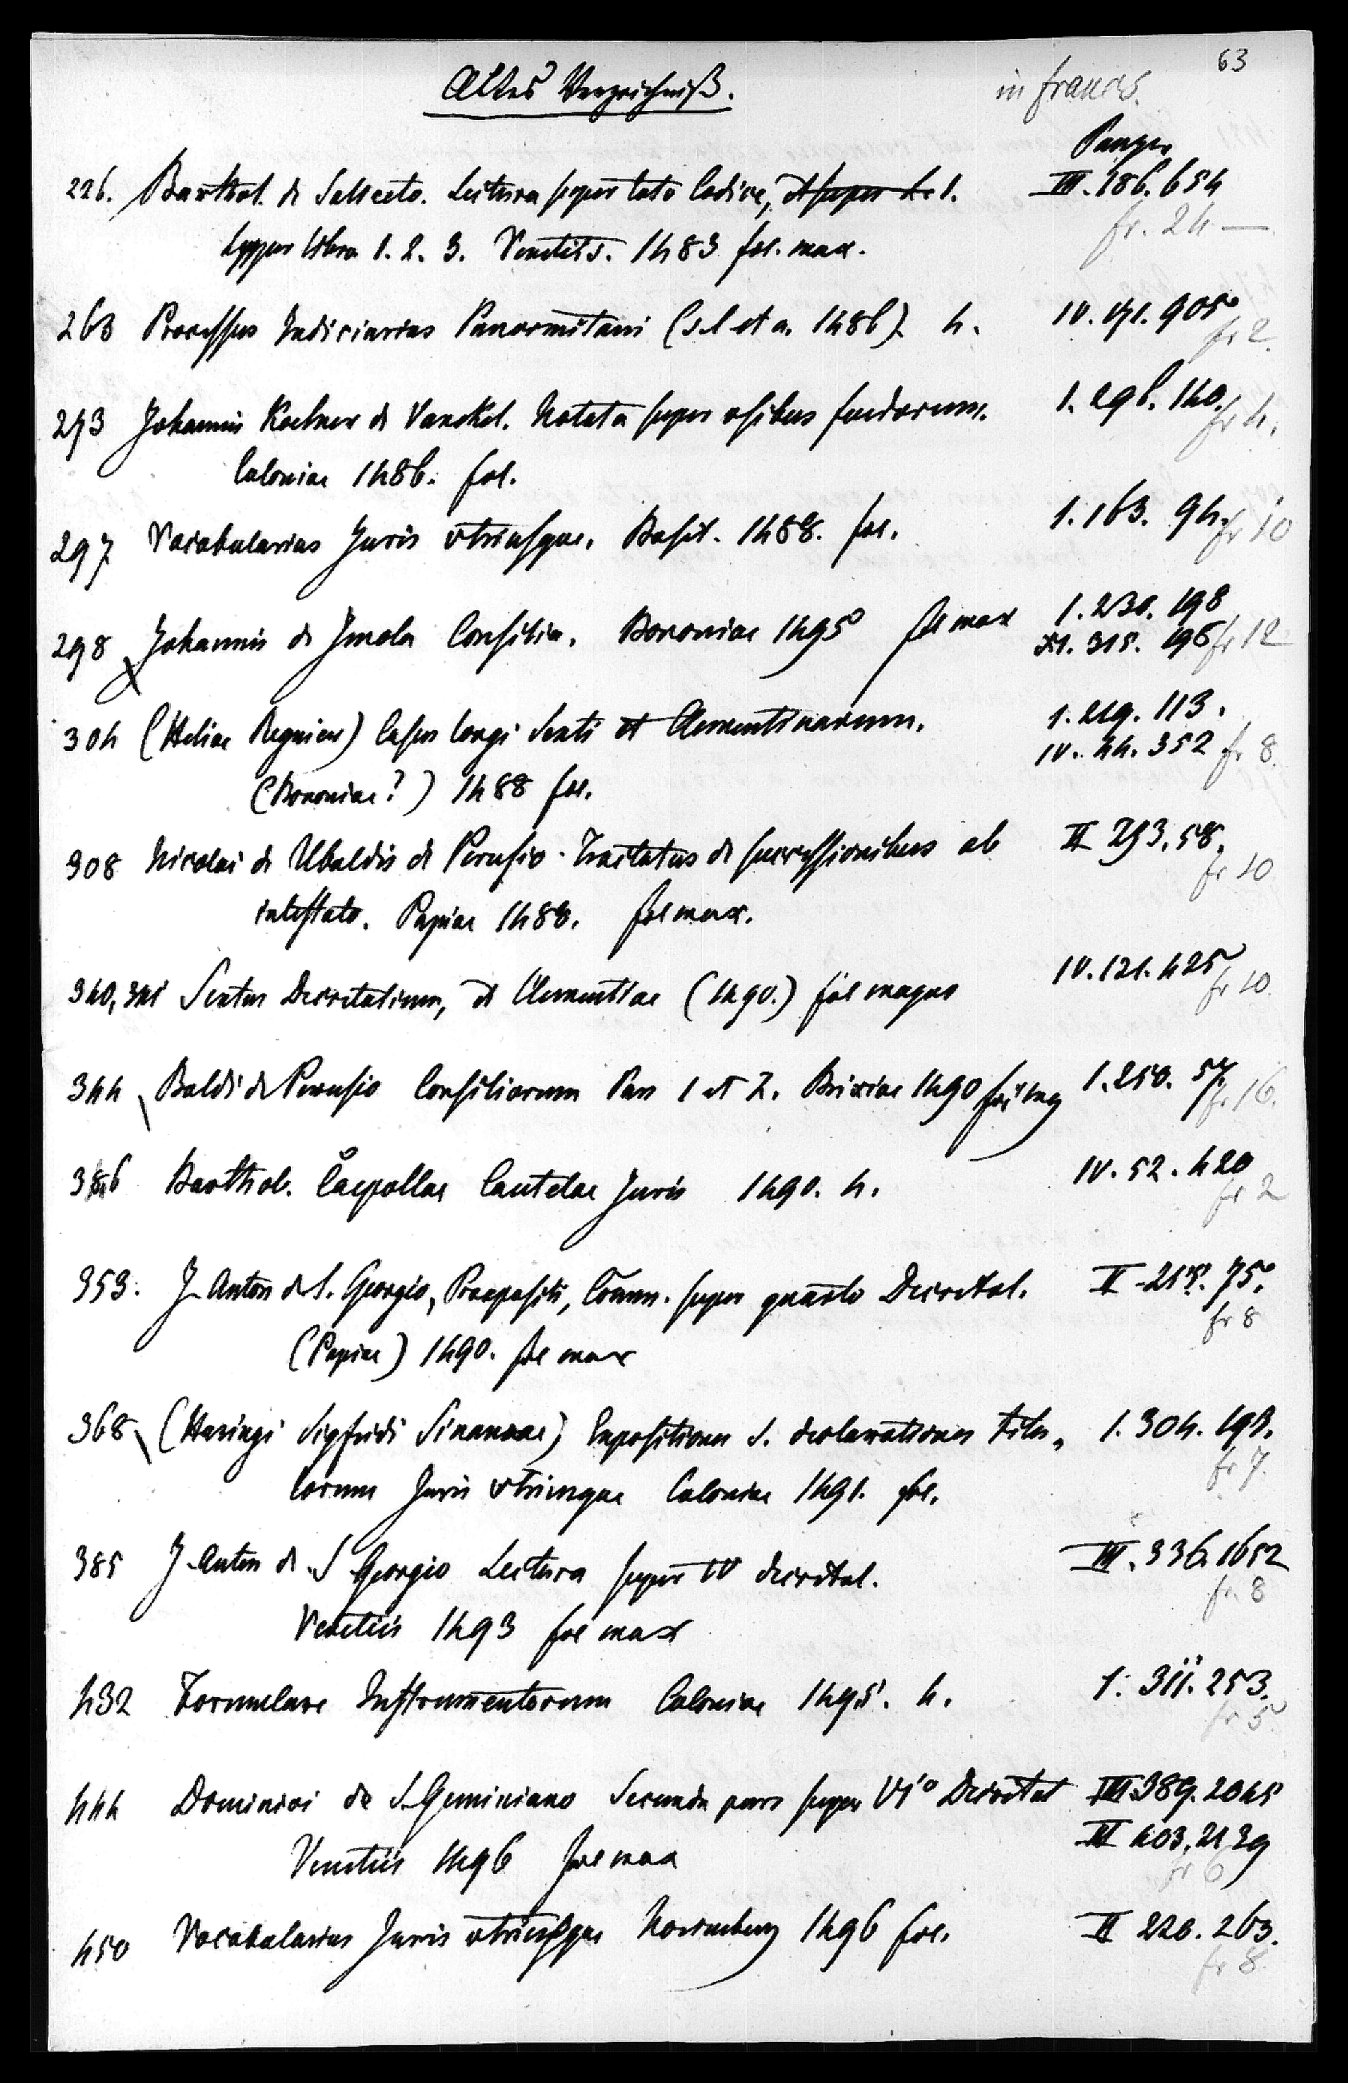 63
Altes Verzeichniß.
in francs.
Panzer
226. Barthol. de Saliceto. Lectura super toto Codice, et super L. 1. III. 186. 654
super libro 1. 2. 3. Venetiis. 1483 fol. max. fr. 24 —
263 Processus Judiciarius Panormitani (s. l. et a. 1486) 4. IV. 171. 905 fr 2.
293 Johannis Koelner de Vanckel. Notata super usibus feudorum. 1. 296. 140. fr 4.
Coloniae 1486. fol.
297 Vocabularius Juris utriusque. Basil. 1488. fol. 1. 163. 94. fr 10
298 Johannis de Imola Consilia. Bononiae 1495 fol max 1. 230. 198
XI. 315. 196 fr 12
304 (Heliae Regnier) Casus longi Sexti et Clementinarum. 1. 219. 113.
(Bononiae?) 1488 fol. IV. 44. 352 fr 8.
308 Nicolai de Ubaldis de Perusio. Tractatus de successionibus ab II 293. 58.
intestato. Papiae 1488. fol max. fr 10
340, 341 Sextus Decretalium, et Clementiae (1490.) fol magno IV. 121. 425 fr 10
344 Baldi de Perusio Consiliorum Pars 1 et 2. Brixiae 1490 fol mg 1. 250. 57. fr 16.
346 Barthol. Caepollae Cautelae Juris 1490. 4. IV. 52. 420
fr 2
353. J Anton de S. Georgio, Praepositi, Comm. super quarto Decretal. II - 215. 75.
(Papiae) 1490. fol max fr 8
368 (Haringi Sipfridi Sinamae) Expositiones S. declarationes titu„ 1. 304. 198.
lorum Juris utriusque Coloniae 1491. fol. fr 7.
385 J. Anton de S Georgio Lectura super IV decretal. III. 336. 1652
Venetiis 1493 fol max fr. 8
432 Formulare Instrumentorum Coloniae 1495. 4. 1. 311. 253.
fr 5
444 Dominici de S. Geminiano Secunda pars super VIº Decretal III 389. 2045
Venetiis 1496 fol max III 403. 2129
fr 6
450 Vocabularius Juris utriusque Norimberg 1496 fol. II 220. 263.
fr 8